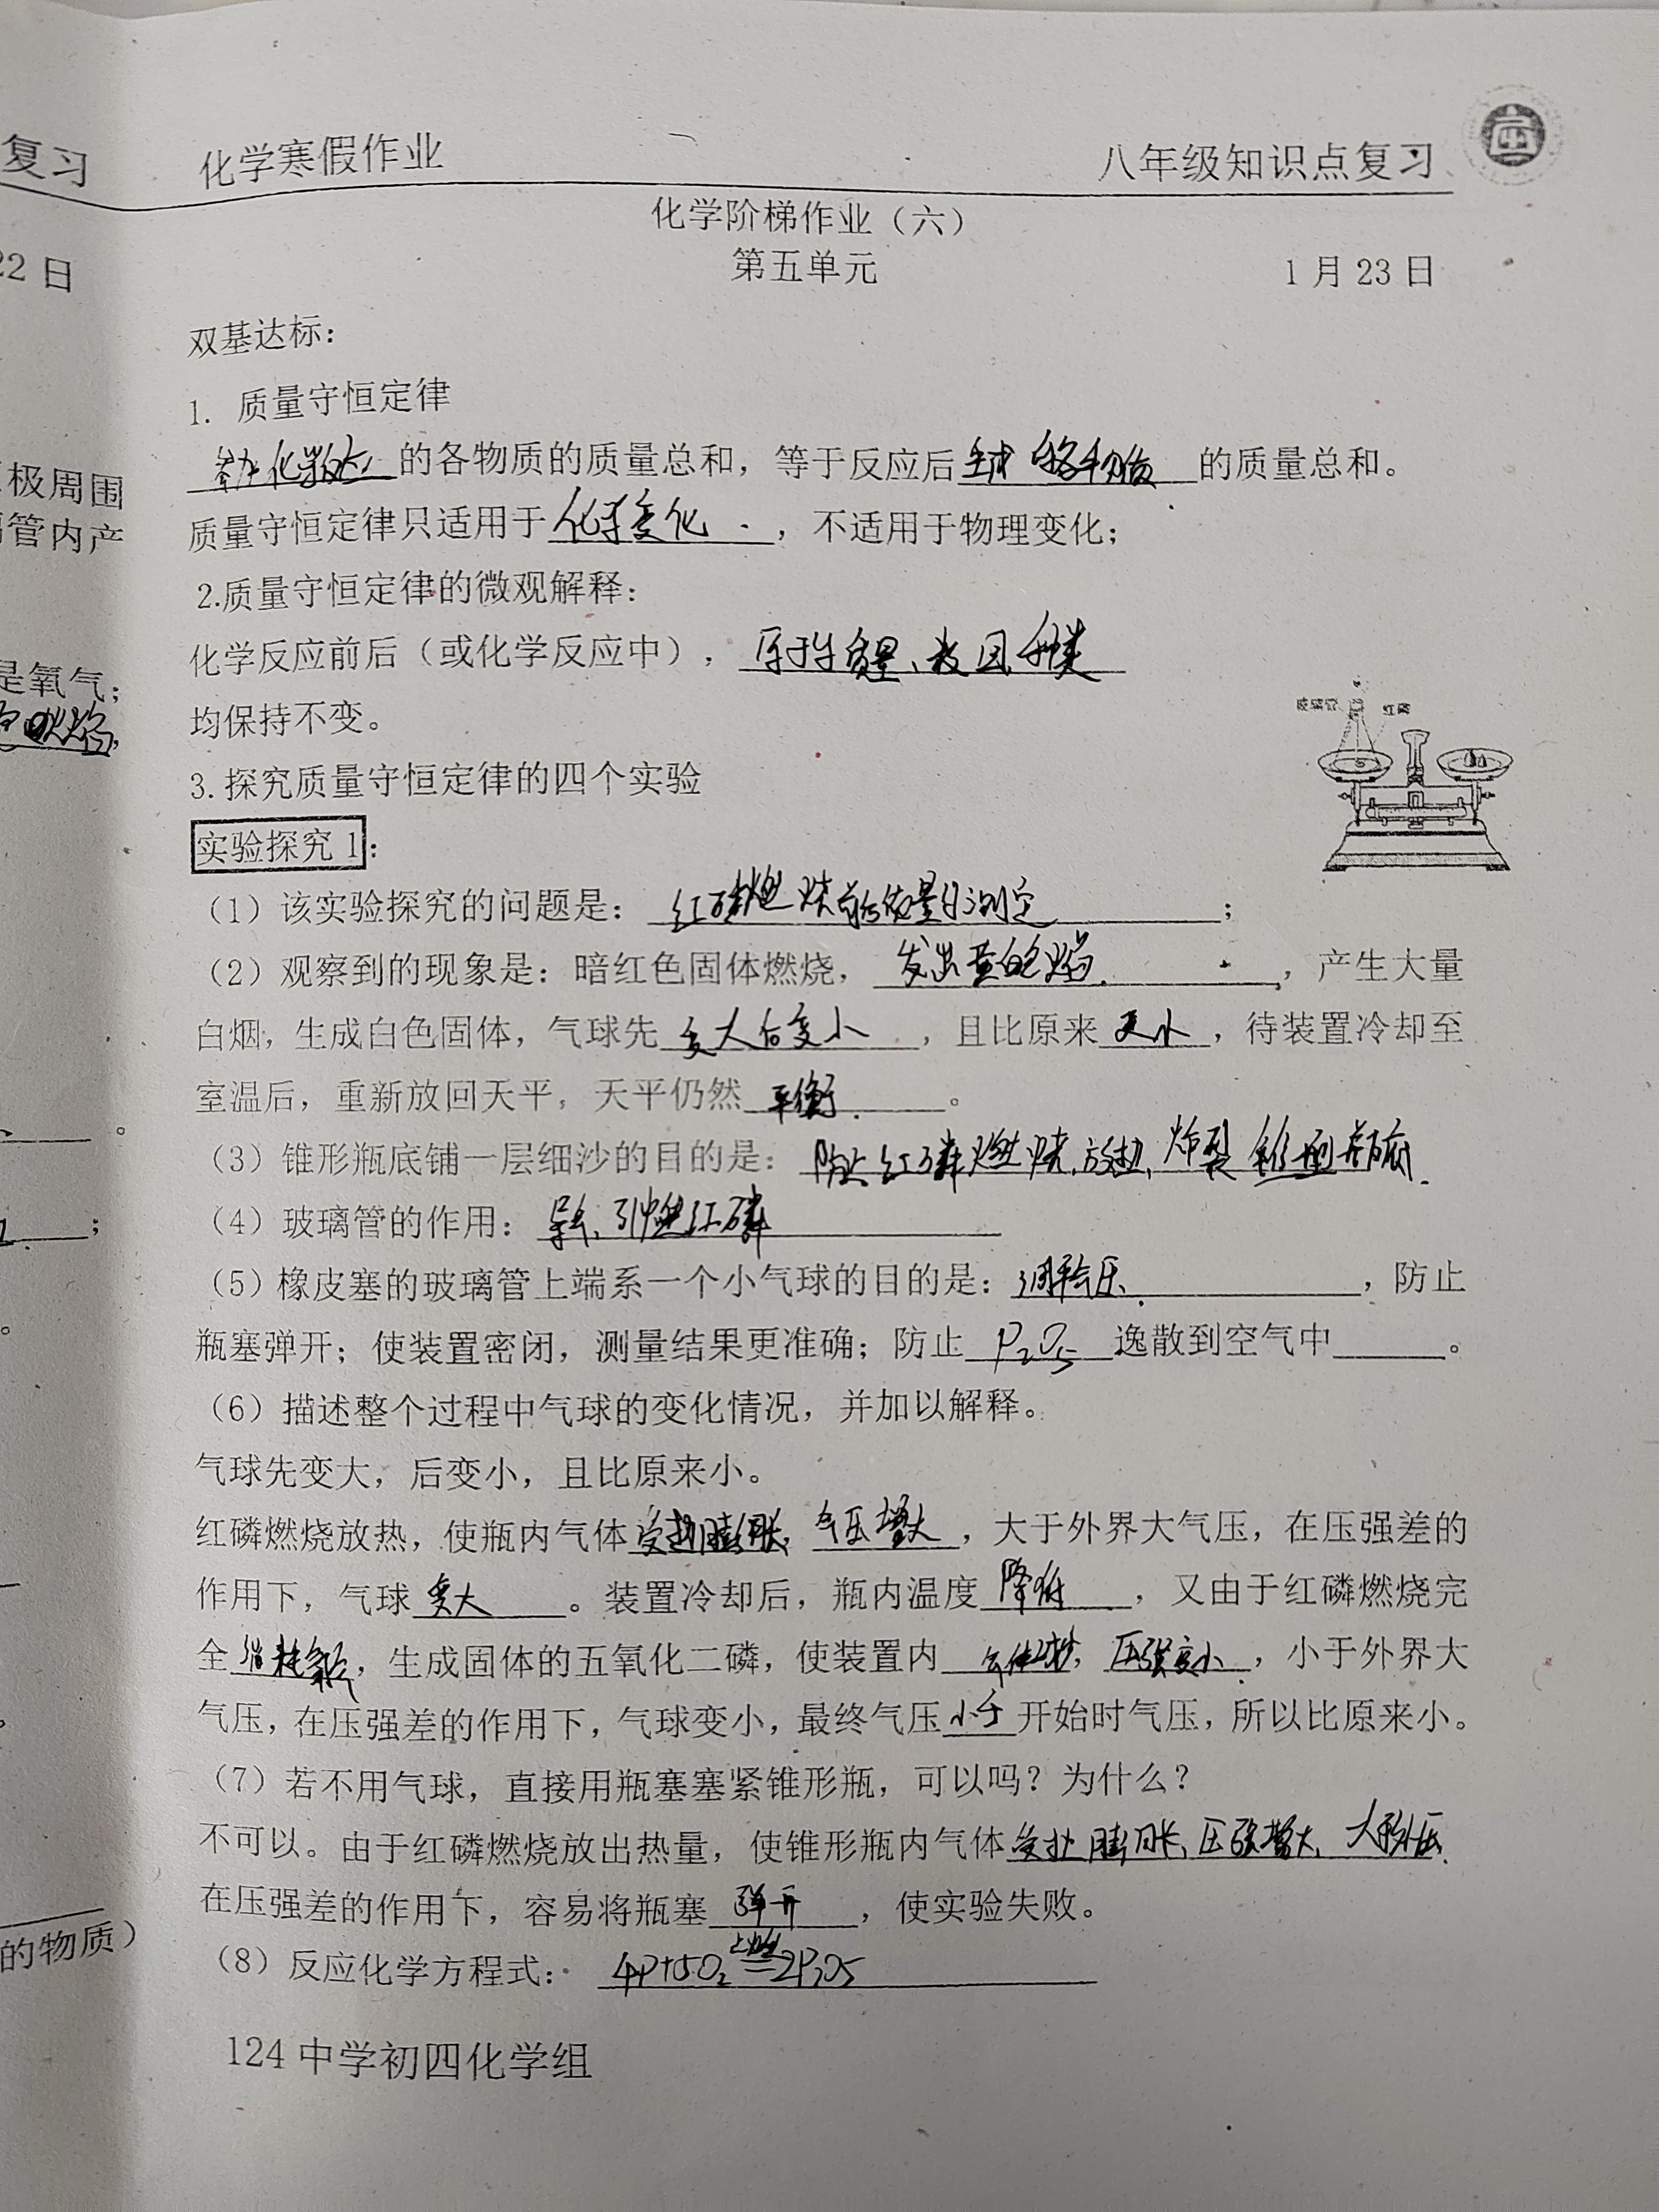 复习 化学寒假作业 八年级知识点复习
化学阶梯作业（六）
22日 第五单元 1月23日
双基达标：
1. 质量守恒定律
参加化学反应的各物质的质量总和，等于反应后生成的各种物质的质量总和。
极周围
质量守恒定律只适用于化学变化，不适用于物理变化；
管内产
2.质量守恒定律的微观解释：
化学反应前后（或化学反应中），原子的质量、数目、种类
是氧气；
均保持不变。
色火焰，
玻璃管 红磷
3.探究质量守恒定律的四个实验
实验探究1：
（1）该实验探究的问题是：红磷燃烧前后质量的测定；
（2）观察到的现象是：暗红色固体燃烧，发出黄白色焰，产生大量
白烟，生成白色固体，气球先变大后变小，且比原来更小，待装置冷却至
室温后，重新放回天平，天平仍然平衡。
（3）锥形瓶底铺一层细沙的目的是：防止红磷燃烧放热，炸裂锥型瓶底.
（4）玻璃管的作用：导气、引燃红磷
（5）橡皮塞的玻璃管上端系一个小气球的目的是：调节气压，防止
瓶塞弹开；使装置密闭，测量结果更准确；防止P₂O₅逸散到空气中。
（6）描述整个过程中气球的变化情况，并加以解释。
气球先变大，后变小，且比原来小。
红磷燃烧放热，使瓶内气体受热膨胀，气压增大，大于外界大气压，在压强差的
作用下，气球变大。装置冷却后，瓶内温度降低，又由于红磷燃烧完
全消耗氧气，生成固体的五氧化二磷，使装置内气体减少，压强变小，小于外界大
气压，在压强差的作用下，气球变小，最终气压小于开始时气压，所以比原来小。
（7）若不用气球，直接用瓶塞塞紧锥形瓶，可以吗？为什么？
不可以。由于红磷燃烧放出热量，使锥形瓶内气体受热膨胀，压强增大，大于外压.
在压强差的作用下，容易将瓶塞弹开，使实验失败。
的物质）
（8）反应化学方程式：4P+5O₂点燃=2P₂O₅
124中学初四化学组